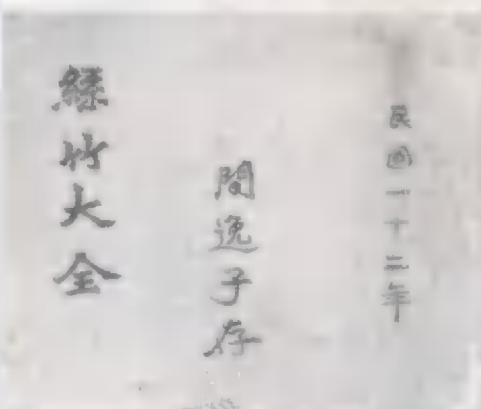 民國一十三年
間逸子存
絲竹大全